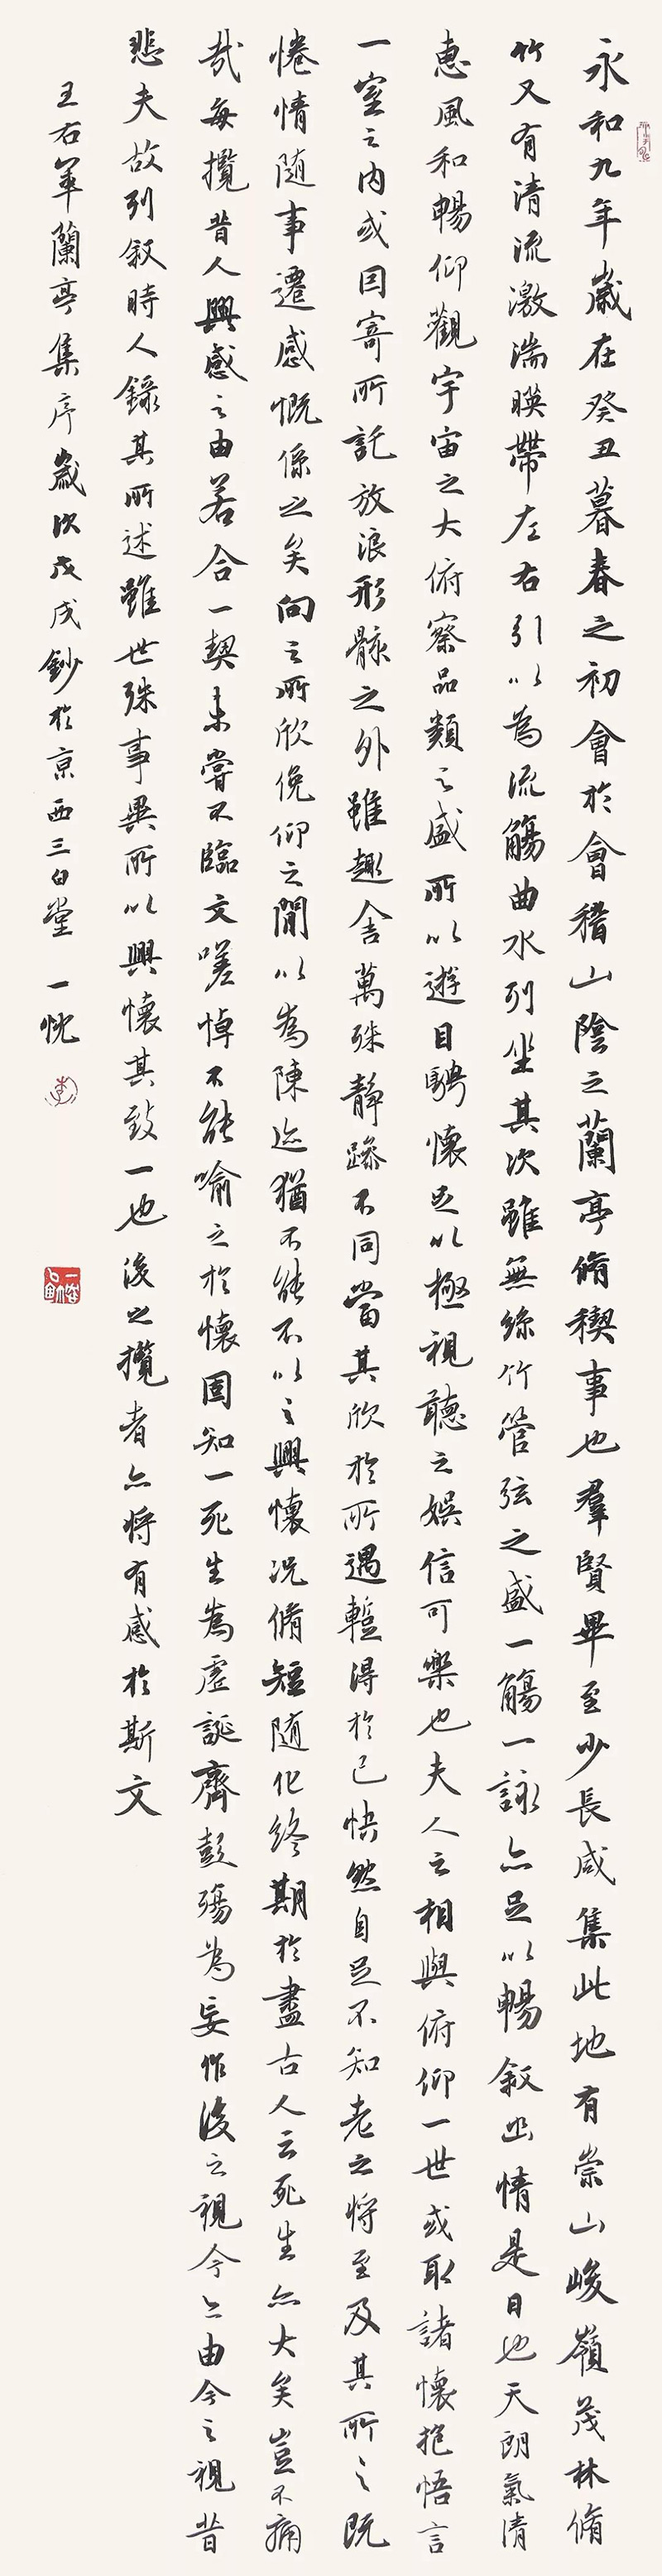 永和九年歲在癸丑暮春之初會於會稽山陰之蘭亭脩稧事也羣賢畢至少長咸集此地有崇山峻嶺茂林脩
竹又有清流激湍暎帶左右引以為流觴曲水列坐其次雖無絲竹管弦之盛一觴一詠亦足以暢叙幽情是日也天朗氣清
惠風和暢仰觀宇宙之大俯察品類之盛所以遊目騁懷足以極視聽之娛信可樂也夫人之相與俯仰一世或取諸懷抱悟言
一室之内或因寄所託放浪形骸之外雖趣舍萬殊静躁不同當其欣於所遇蹔得於己快然自足不知老之將至及其所之既
惓情随事遷感慨係之矣向之所欣俛仰之閒以為陳迹猶不能不以之興懷況脩短随化終期於盡古人云死生亦大矣豈不痛
哉每攬昔人興感之由若合一契未嘗不臨文嗟悼不能喻之於懷固知一死生為虛誕齊彭殤為妄作後之視今亦由今之視昔
悲夫故列叙時人錄其所述雖世殊事異所以興懷其致一也後之攬者亦將有感於斯文
王右軍蘭亭集序歲次戊戌鈔於京西三白堂 一忱
李